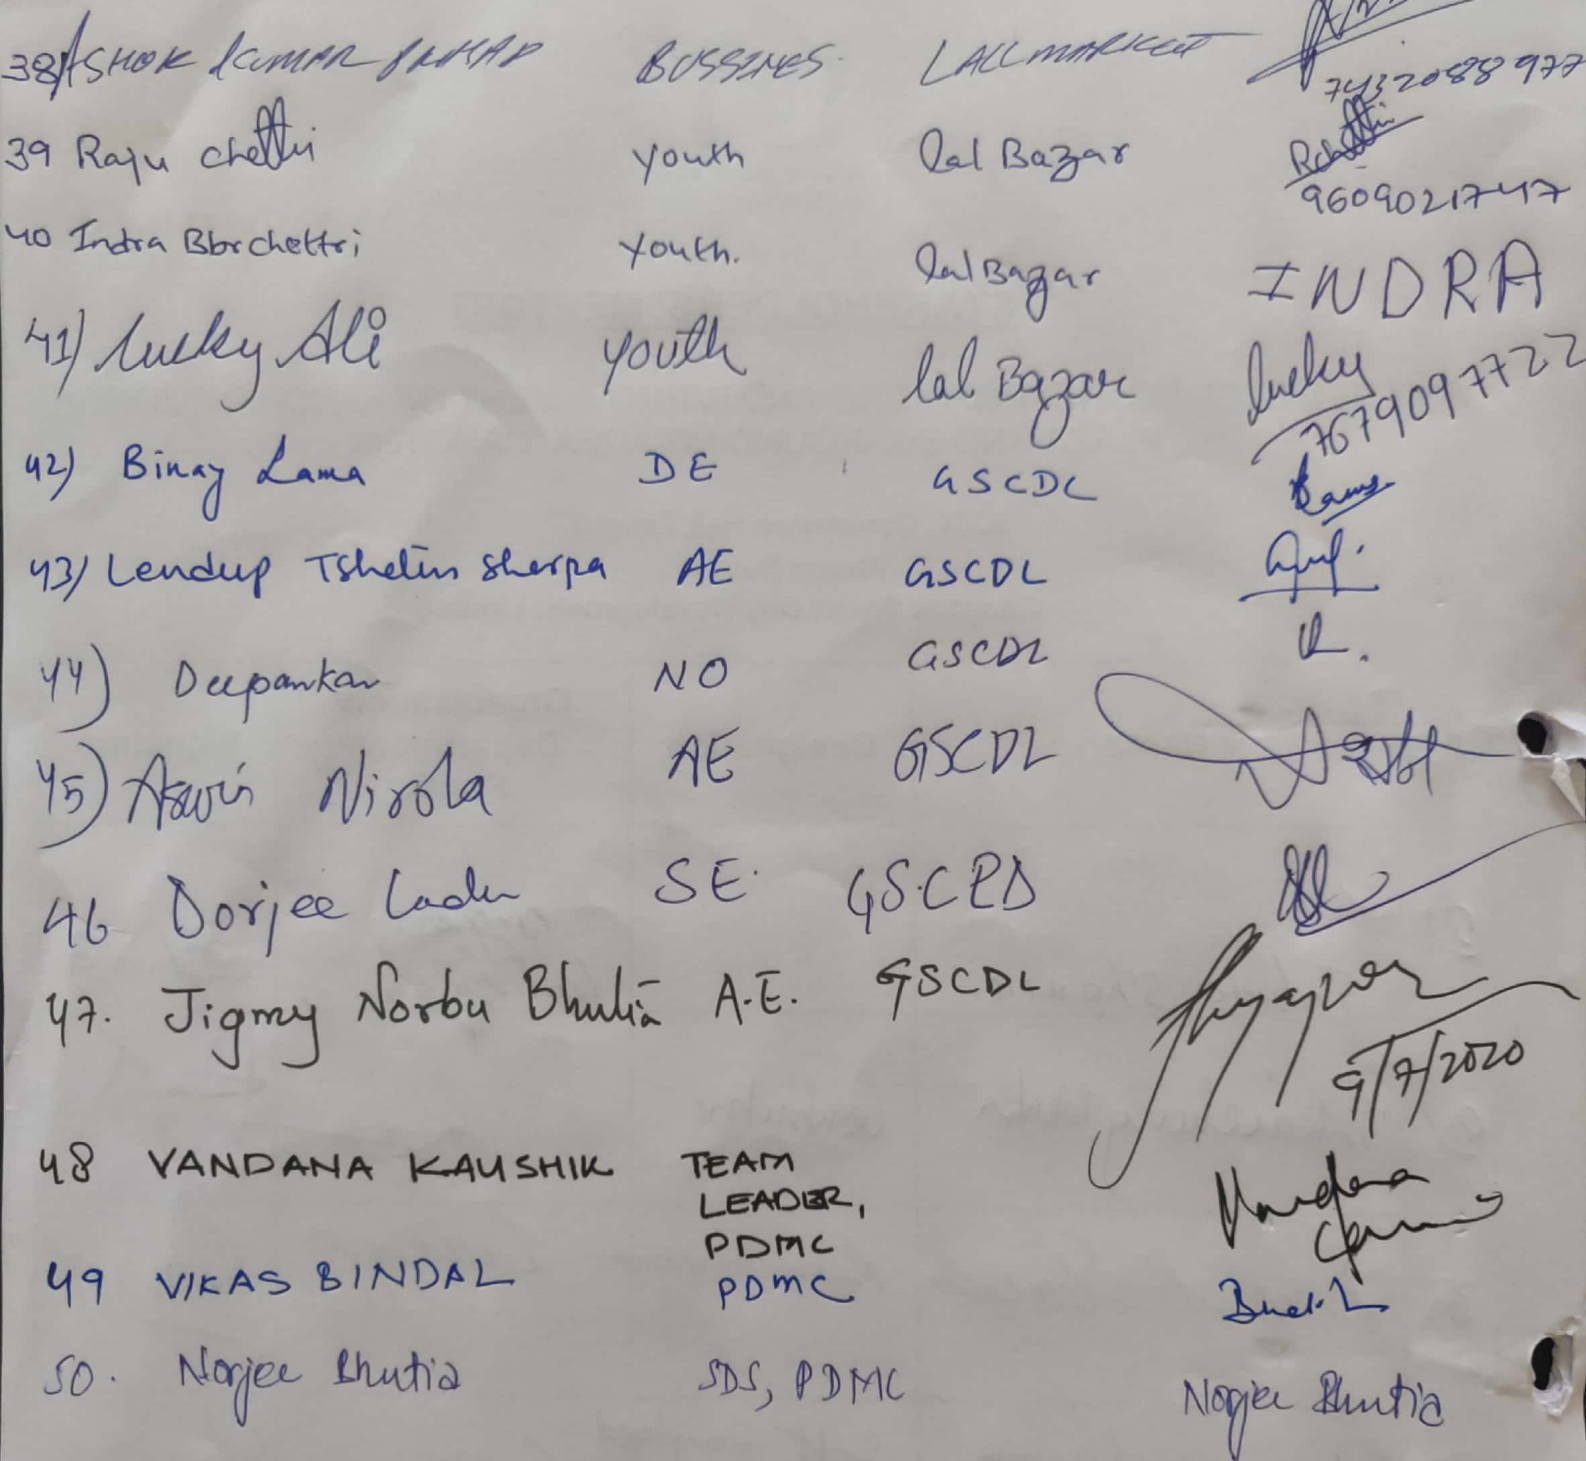 38 ASHOK KUMAR PRASAD BUSSINES. LALL MARKET
7432088977
39 Raju Chettri youth lal Bazar RChettri
9609021747
40 Indra Bdr chettri Youth. lal Bazar INDRA
41) Lucky Ali youth lal Bazar lucky
7679097722
42) Binay Lama DE GSCDL Lama
43) Lendup Tshetin Sherpa AE GSCDL
44) Deepankar NO GSCDL
45) Aswin Nirola AE GSCDL
46 Dorjee Ladu SE. GSCDL
47. Jigmy Norbu Bhutia A.E. GSCDL
9/7/2020
48 VANDANA KAUSHIK TEAM Vandana
LEADER,
PDMC
49 VIKAS BINDAL PDMC
50. Norjee Bhutia SDS, PDMC Norjee Bhutia